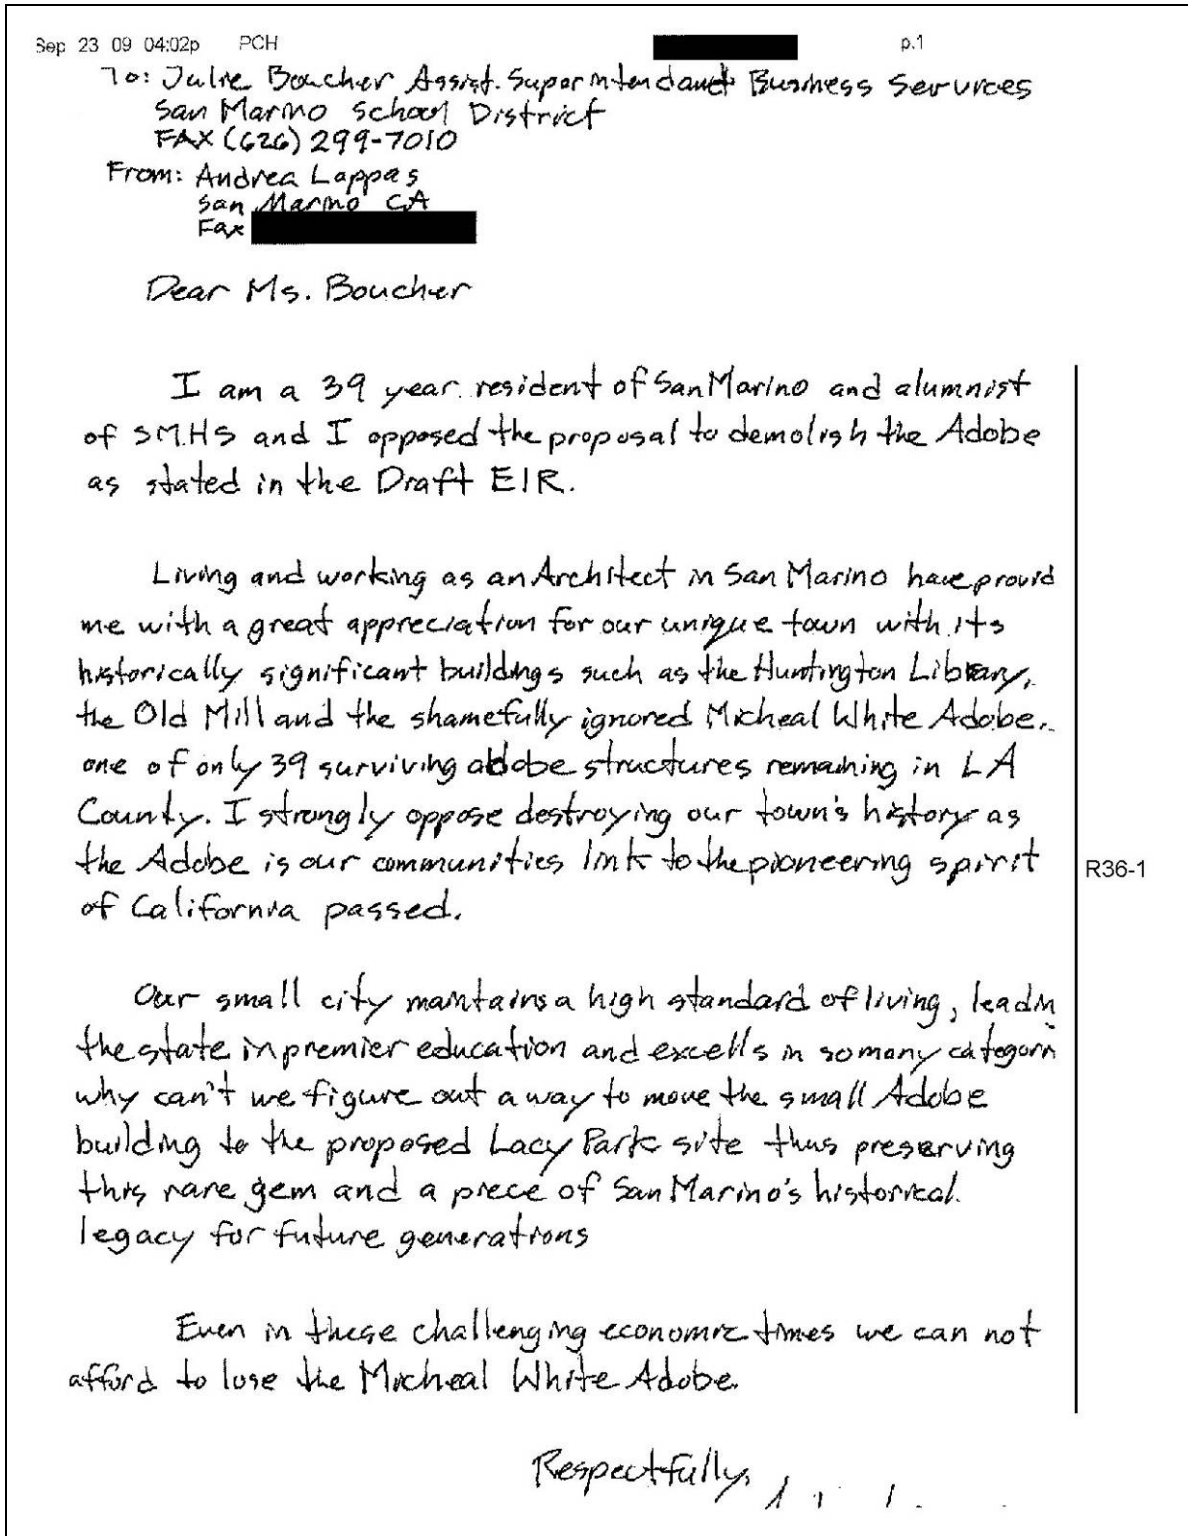 Sep 23 09 04:02p PCH p.1
To: Julie Boucher Assist. Superintendant Business Services
San Marino School District
FAX (626) 299-7010
From: Andrea Lappas
San Marino CA
Fax
Dear Ms. Boucher
I am a 39 year resident of San Marino and alumnist
of SMHS and I opposed the proposal to demolish the Adobe
as stated in the Draft EIR.
Living and working as an Architect in San Marino have provid
me with a great appreciation for our unique town with its
historically significant buildings such as the Huntington Library,
the Old Mill and the shamefully ignored Micheal White Adobe.
one of only 39 surviving adobe structures remaining in LA
County. I strongly oppose destroying our town's history as
the Adobe is our communities link to the pioneering spirit
R36-1
of California passed.
Our small city maintains a high standard of living, leadin
the state in premier education and excells in so many categori
why can't we figure out a way to move the small Adobe
building to the proposed Lacy Park site thus preserving
this rare gem and a piece of San Marino's historical.
legacy for future generations
Even in these challenging economic times we can not
afford to lose the Micheal White Adobe.
Respectfully,